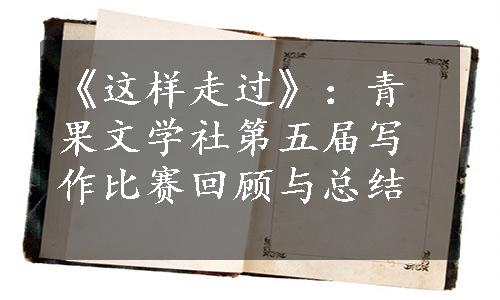 《这样走过》：青
果文学社第五届写
作比赛回顾与总结